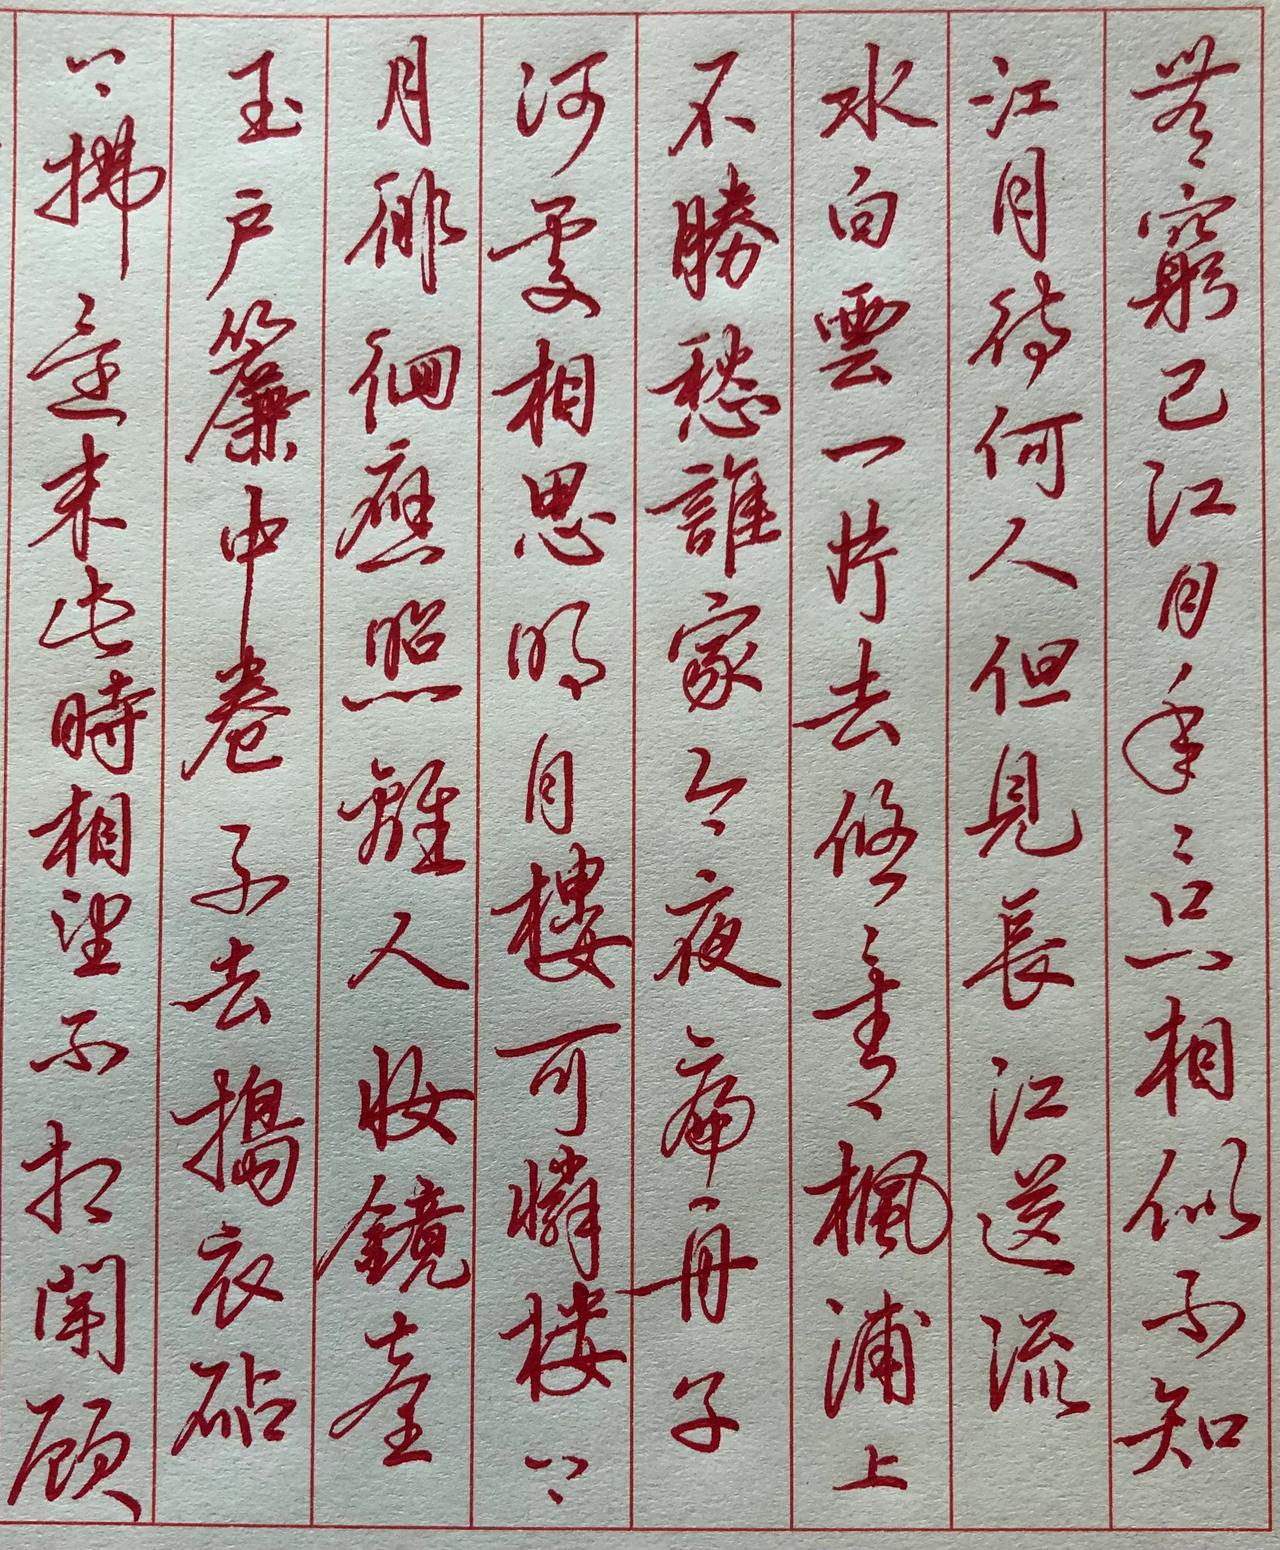 無窮已江月年〻只相似不知
江月待何人但見長江送流
水白雲一片去悠〻青楓浦上
不勝愁誰家今夜扁舟子
河處相思明月樓可憐樓上
月徘徊應照離人妝鏡臺
玉戶簾中卷不去擣衣砧
上拂還來此時相望不相聞願